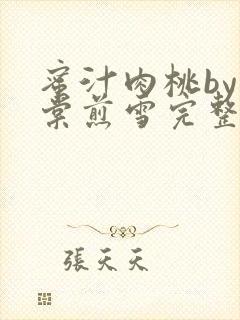 蜜汁肉桃by
棠煎雪完整
張天天